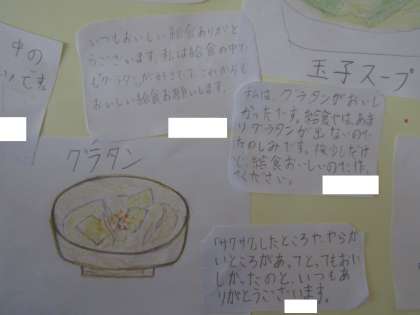 中の
です。
いつもおいしい給食ありがと
うございます。私は給食の中で
グラタンが好きです。これからも
おいしい給食お願いします。
玉子スープ
私は、グラタンがおいし
かったです。給食では、あま
りグラタンが出ないので
たのしみです。
給食おいしいので
ください。
グラタン
「サクサク」したところや、やらか
いところがあって、とてもおい
しかったのと、いつもあ
りがとうございます。